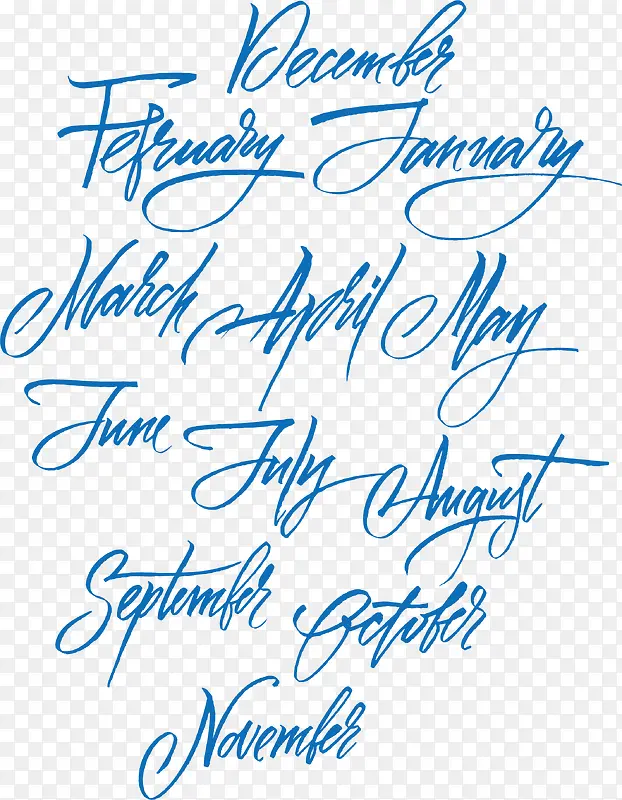 December
February January
March April May
June July August
September October
November